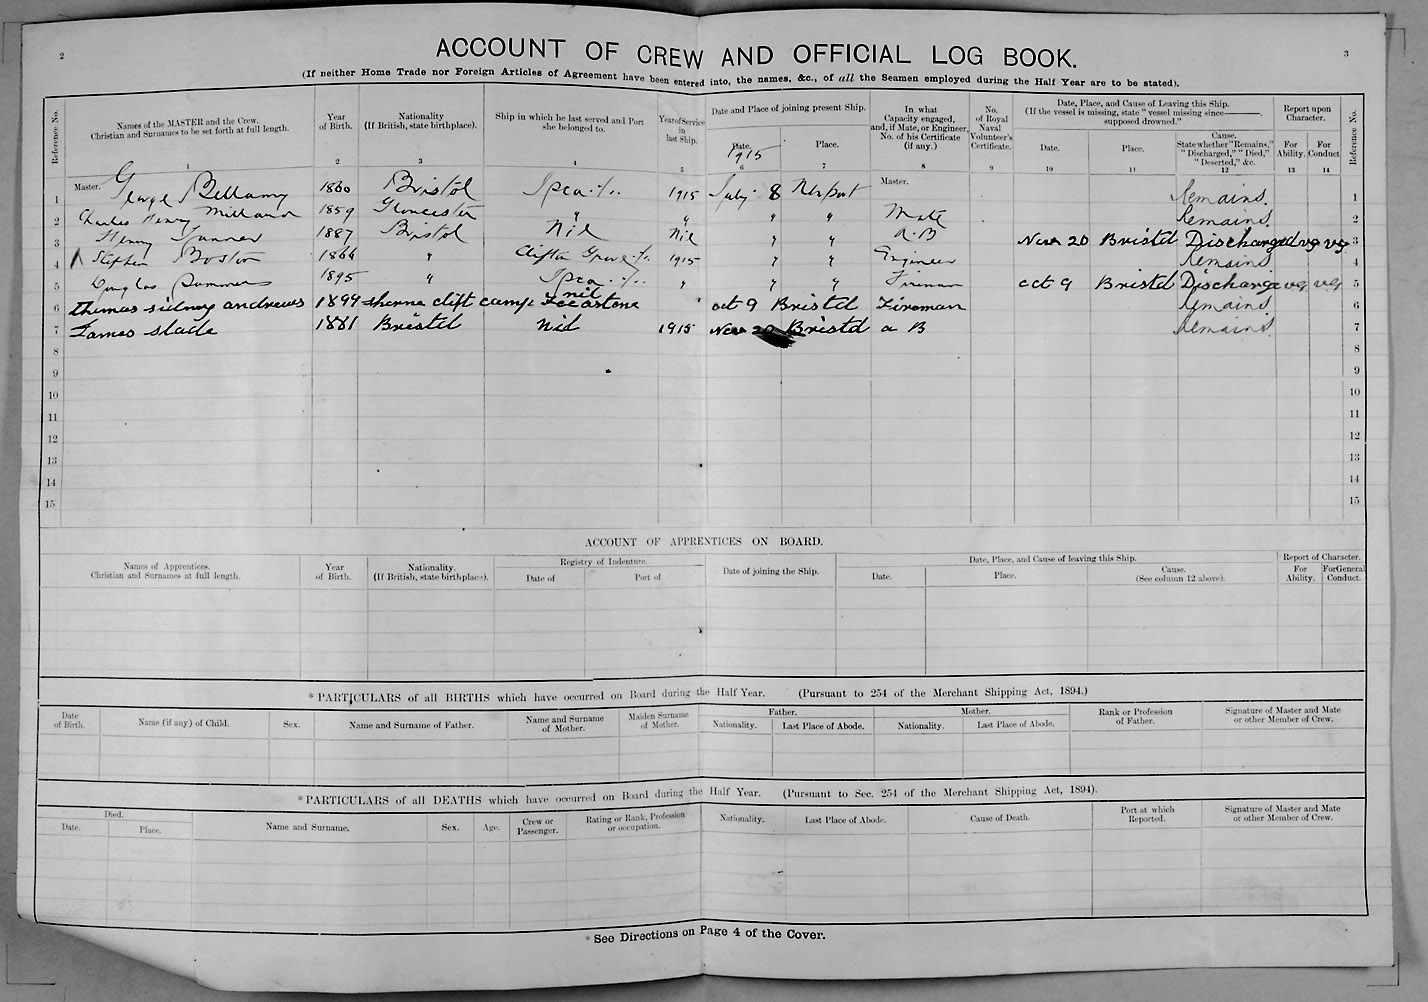 2
3
ACCOUNT OF CREW AND OFFICIAL LOG BOOK.
(If neither Home Trade nor Foreign Articles of Agreement have been entered into, the names, &c., of all the Seamen employed during the Half Year are to be stated).
Reference No. Names of the MASTER and the Crew. Christian and Surnames to be set forth at full length. Year of Birth. Nationality (If British, state birthplace). Ship in which he last served and Port she belonged to. Year of Service in last Ship. Date and Place of joining present Ship. In what Capacity engaged, and, if Mate, or Engineer, No. of his Certificate (if any.) No. of Royal Naval Volunteer's Certificate. Date, Place, and Cause of Leaving this Ship. (If the vessel is missing, state "vessel missing since———, supposed drowned." Report upon Character. Reference No.
Date. 1915 Place. Date. Place. Cause. State whether "Remains," "Discharged," "Died," "Deserted," &c. For Ability. For Conduct
1 2 3 4 5 6 7 8 9 10 11 12 13 14
1 Master. George Bellamy 1860 Bristol 1915 July 8 Newport Master. Remains 1
2 Charles Henry 1859 Gloucester " " " " Mate Remains 2
3 Henry 1887 Bristol Nil Nil " " A.B Nov 20 Bristol Discharged vg vg 3
4 Stephen Boston 1864 " Clifton Grove 1915 " " Engineer Remains 4
5 Douglas Summers 1895 " " " " Fireman oct 9 Bristol Discharge vg vg 5
6 thomas sidney andrews 1899 clift camp nil oct 9 Bristol Fireman Remains 6
7 James slade 1881 Bristol Nil 1915 Nov 20 Bristol a B Remains 7
8 8
9 9
10 10
11 11
12 12
13 13
14 14
15 15
ACCOUNT OF APPRENTICES ON BOARD.
Names of Apprentices. Christian and Surnames at full length. Year of Birth. Nationality. (If British, state birthplace). Registry of Indenture. Date of joining the Ship. Date, Place, and Cause of leaving this Ship. Report of Character.
Date of Port of Date. Place. Cause. (See column 12 above). For Ability. For General Conduct.
* PARTICULARS of all BIRTHS which have occurred on Board during the Half Year. (Pursuant to 254 of the Merchant Shipping Act, 1894.)
Date of Birth. Name (if any) of Child. Sex. Name and Surname of Father. Name and Surname of Mother. Maiden Surname of Mother. Father. Mother. Rank or Profession of Father. Signature of Master and Mate or other Member of Crew.
Nationality. Last Place of Abode. Nationality. Last Place of Abode.
* PARTICULARS of all DEATHS which have occurred on Board during the Half Year. (Pursuant to Sec. 254 of the Merchant Shipping Act, 1894).
Died. Name and Surname. Sex. Age. Crew or Passenger. Rating or Rank, Profession or occupation. Nationality. Last Place of Abode. Cause of Death. Port at which Reported. Signature of Master and Mate or other Member of Crew.
Date. Place.
* See Directions on Page 4 of the Cover.